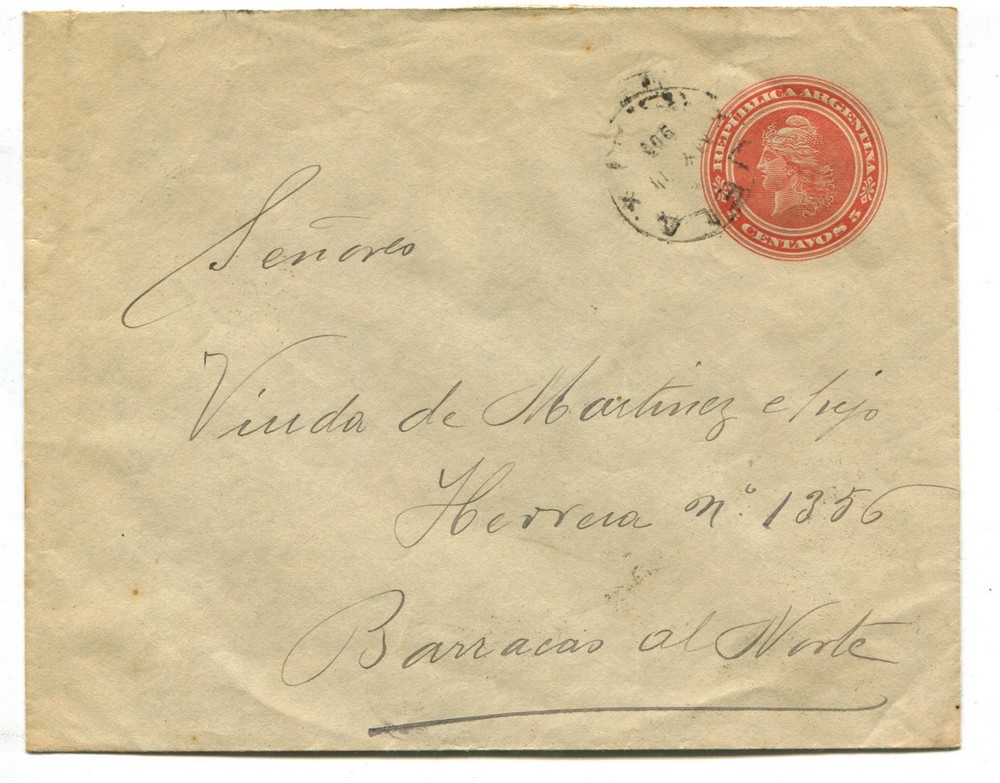 REPUBLICA ARGENTINA
CENTAVOS 5
Señores
Viuda de Martinez e hijo
Herrera nº 1356
Barracas al Norte